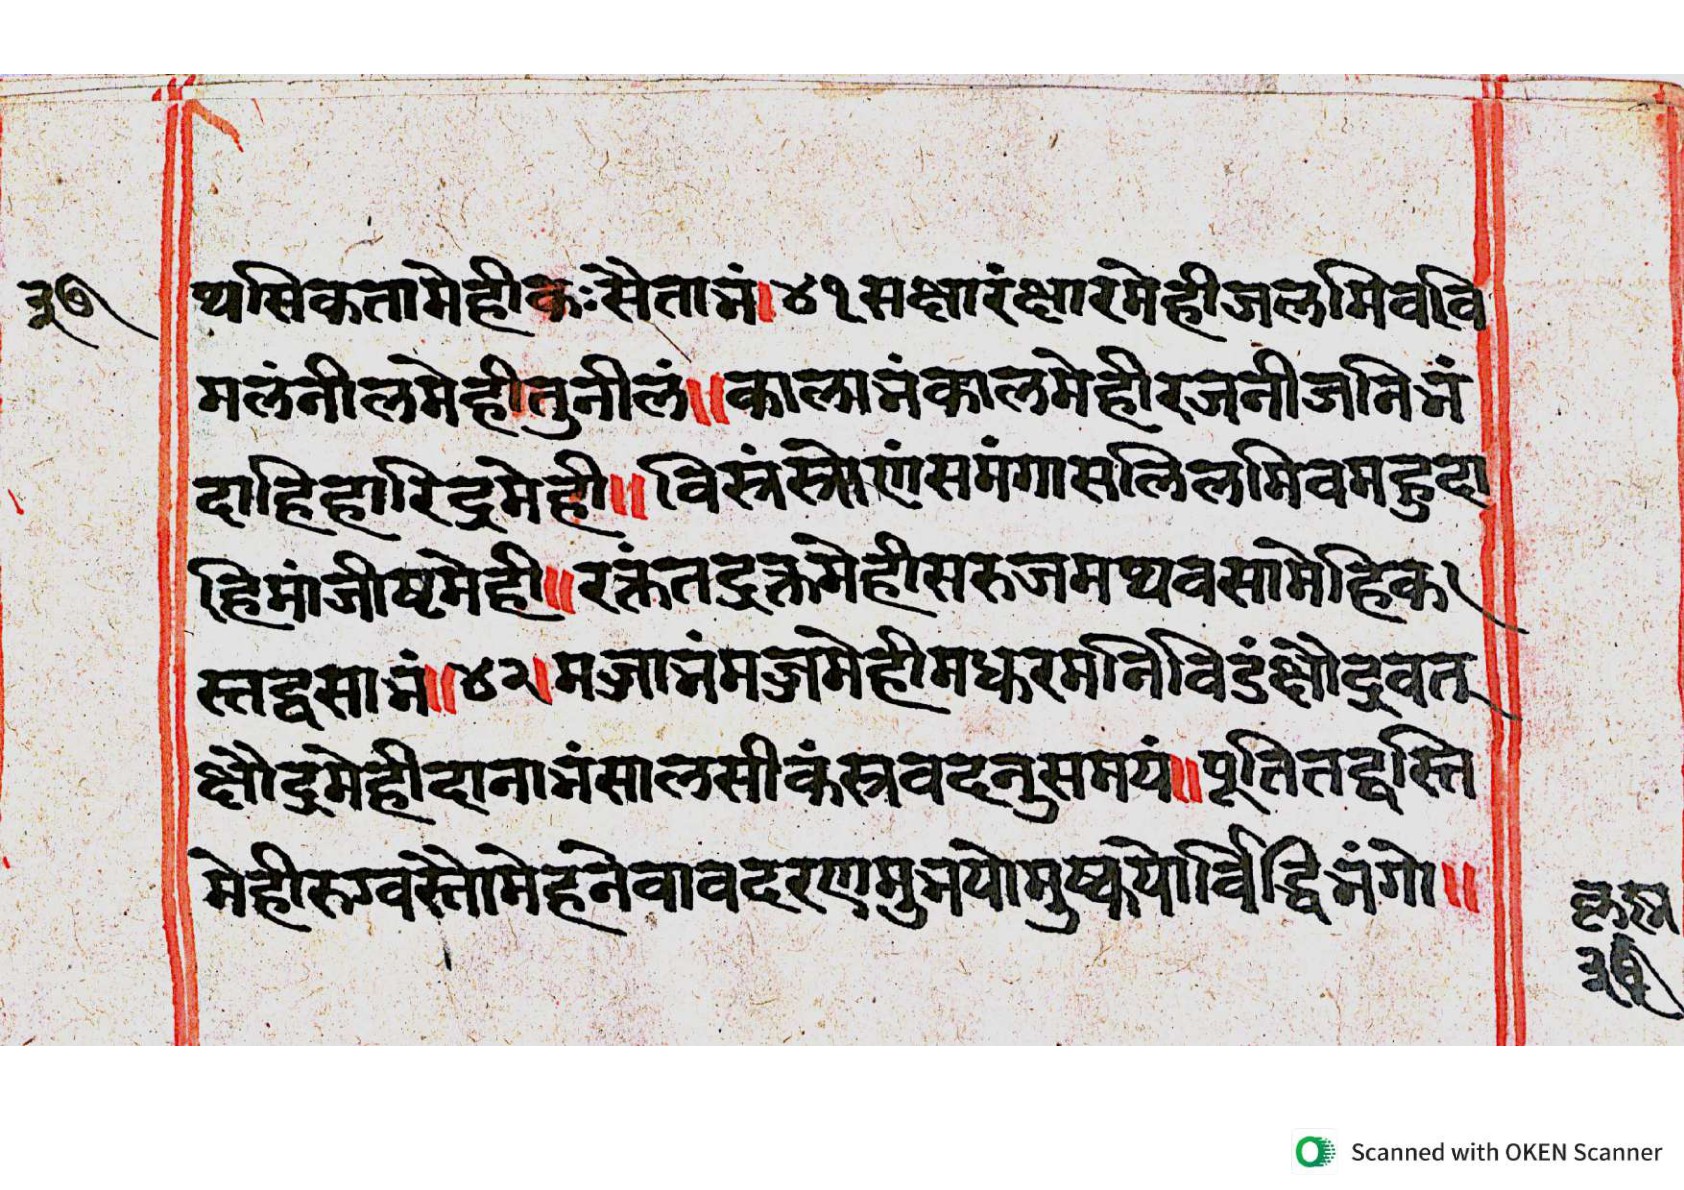 ३७
थसिकतामेहीकःसैताभं।४१सक्षारंक्षारमेहीजलमिववि
मलंनीलमेहीतुनीलं॥कालाभंकालमेहीरजनीजनिभं
दाहिहारिद्रमेही॥विस्रंस्रोणंसमंगासलिलमिवमहुदा
हिमांजीष्टमेही॥रक्तंतद्रक्तमेहीसरुजमथवसामेहिक
स्तद्वसाभं॥४२।मज्जाभंमज्जमेहीमधुरमनिविडंक्षौद्रवत्
क्षौद्रमेहीदानाभंसालसीकंस्रवदनुसमयं॥पूतितद्धस्ति
मेहीरुग्वस्तौमेहनेवावदरणमुभयोमुष्कयोर्विद्विभंगो॥
३७
Scanned with OKEN Scanner